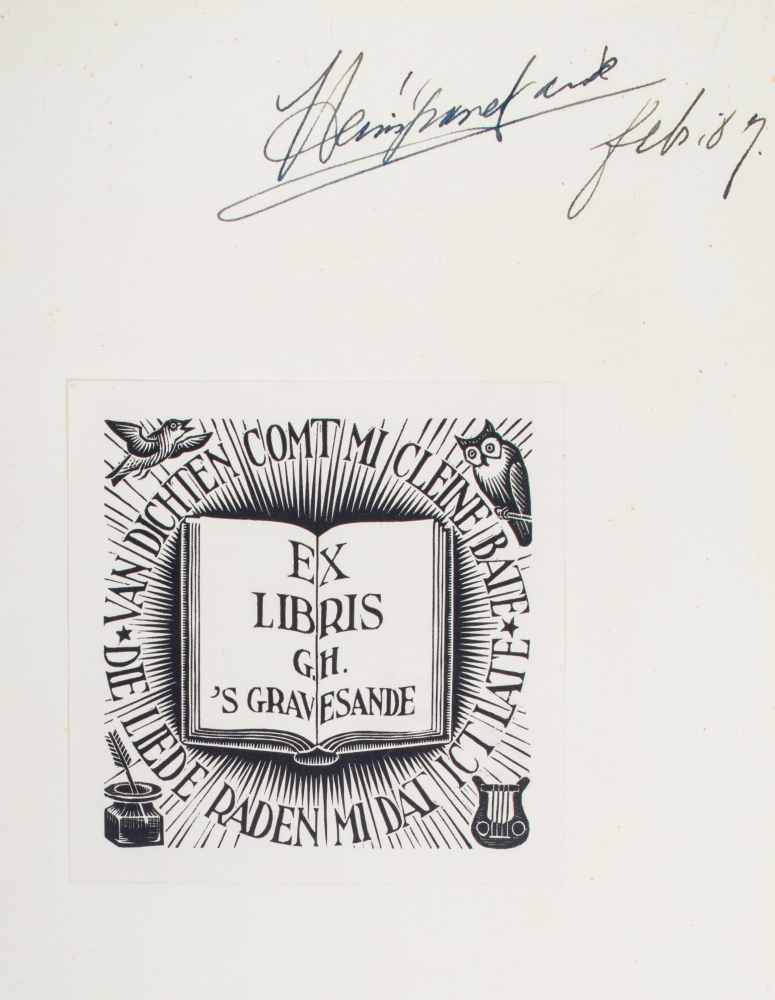 feb. 87.
VAN DICHTEN COMT MI CLEINE BATE ★
DIE LIEDE RADEN MI DAT ICT LATE ★
EX
LIBRIS
G.H.
'S GRAVESANDE